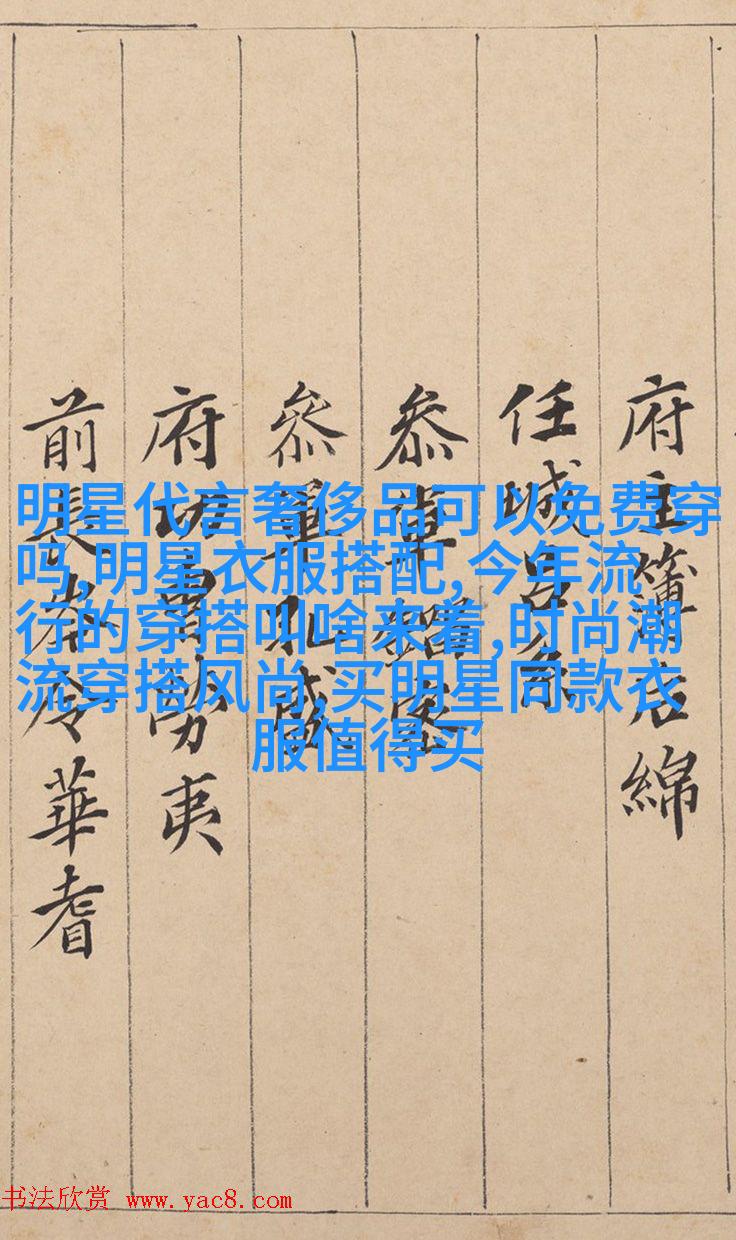 明星代言奢侈品可以免费穿
吗,明星衣服搭配,今年流
行的穿搭叫啥来着,时尚潮
流穿搭风尚,买明星同款衣
服值得买
府主簿后綿
任城呂系
叅軍密
叅軍孔盛
府功曹勞夷
前長岑令華耆
书法欣赏 www.yac8.com